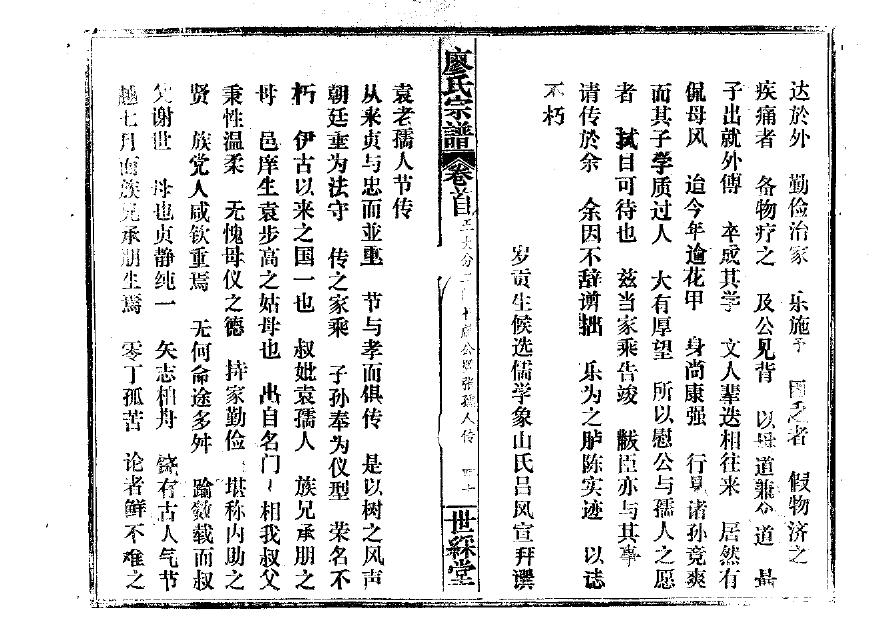 达於外 勤俭治家 乐施予 困乏者 假物济之
疾痛者 备物疗之 及公见背 以母道兼父道 是
子出就外傅 卒成其学 文人辈迭相往来 居然有
侃母风 迨今年逾花甲 身尚康强 行见诸孙竞爽
而其子学质过人 大有厚望 所以慰公与孺人之愿
者 拭目可待也 兹当家乘告竣 黻臣亦与其事
请传於余 余因不辞谫拙 乐为之胪陈实迹 以志
不朽
岁贡生候选儒学象山氏吕凤宣拜撰
廖氏宗譜 卷首 公 张孺人传 四十 世綵堂
袁老孺人节传
从来贞与忠而並重 节与孝而俱传 是以树之风声
朝廷垂为法守 传之家乘 子孙奉为仪型 荣名不
朽 伊古以来之国一也 叔妣袁孺人 族兄承朋之
母 邑庠生袁步高之姑母也 出自名门 相我叔父
秉性温柔 无愧母仪之德 持家勤俭 堪称内助之
贤 族党人咸钦重焉 无何命途多舛 踰数载而叔
父谢世 母也贞静纯一 矢志柏舟 饶有古人气节
越七月而族兄承朋生焉 零丁孤苦 论者鲜不难之